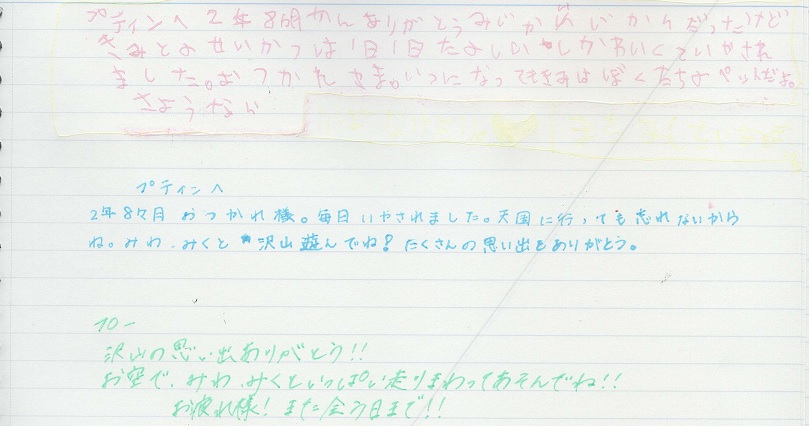 プティンへ 2年8ヶ月かんありがとうみじかいじかんだったけど
きみとのせいかつは1日1日たのしいしかわいくていやされ
ました。おつかれさま。いつになってもきみはぼくたちのペットだよ。
さようなら
プティンへ
2年8ヶ月 おつかれ様。毎日いやされました。天国に行っても忘れないから
ね。みわ、みくと沢山遊んでね!たくさんの思い出をありがとう。
プー
沢山の思い出ありがとう!!
お空で、みわ、みくといっぱい走りまわってあそんでね!!
お疲れ様! また会う日まで!!